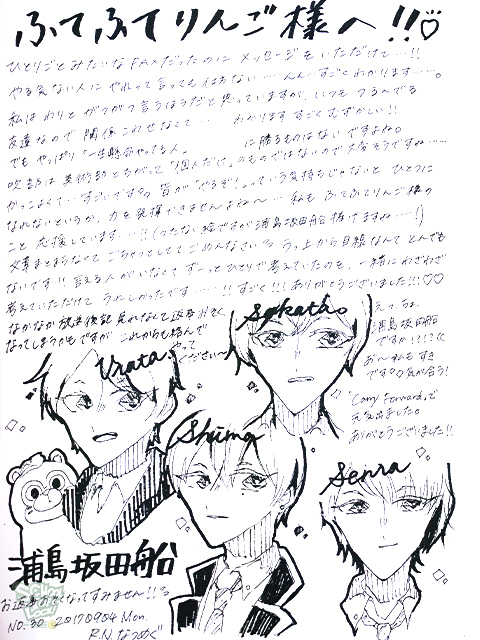 ふてふてりんご様へ!!♡
ひとりごとみたいなFAXだったのにメッセージをいただけて…!!
やる気ない人にやれって言っても仕方ない……んん…すごくわかります……。
私はわりとがつがつ言うほうだと思っていますが、いつもつるんでる
友達なので関係これせなくて… わかりますすごくむずかしい!!
でもやっぱり「一生懸命やってる人」に勝るものはないですよね。
吹部は美術部とちがって「個人だけ」のものではないので大変そうですね……
がっこよくて…すごいです。皆が「やるぞ!」っていう気持ちじゃないとひとつに
なれないというか、力を発揮できませんよね〜…私もふてふてりんご様の
こと応援しています…!!(つたない絵ですが浦島坂田船描けますね……!)
文章まとまらなくてごちゃっとしててごめんなさい う、上から目線なんてとんでも
ないです!!言える人がいなくてずーっとひとりで考えていたのを、一緒にわざわざ
考えていただけてうれしかったです……!!すごく!!ありがとうございました!!♡♡
なかなか放送後記見れなくて返事おそく
なってしまうかもですがこれからも絡んで
やって
くださいー
Sakata。
えっちょ、
浦島坂田船
ですか!?!?
お〜私もすき
です♡気が合う!
"Carry Forward"で
元気出ました。
ありがとうございました!!
Urata.
Shima
Senra
浦島坂田船
お返事おそくなってすみません!!
NO.30 20170904 Mon.
R.N.なつめぐ